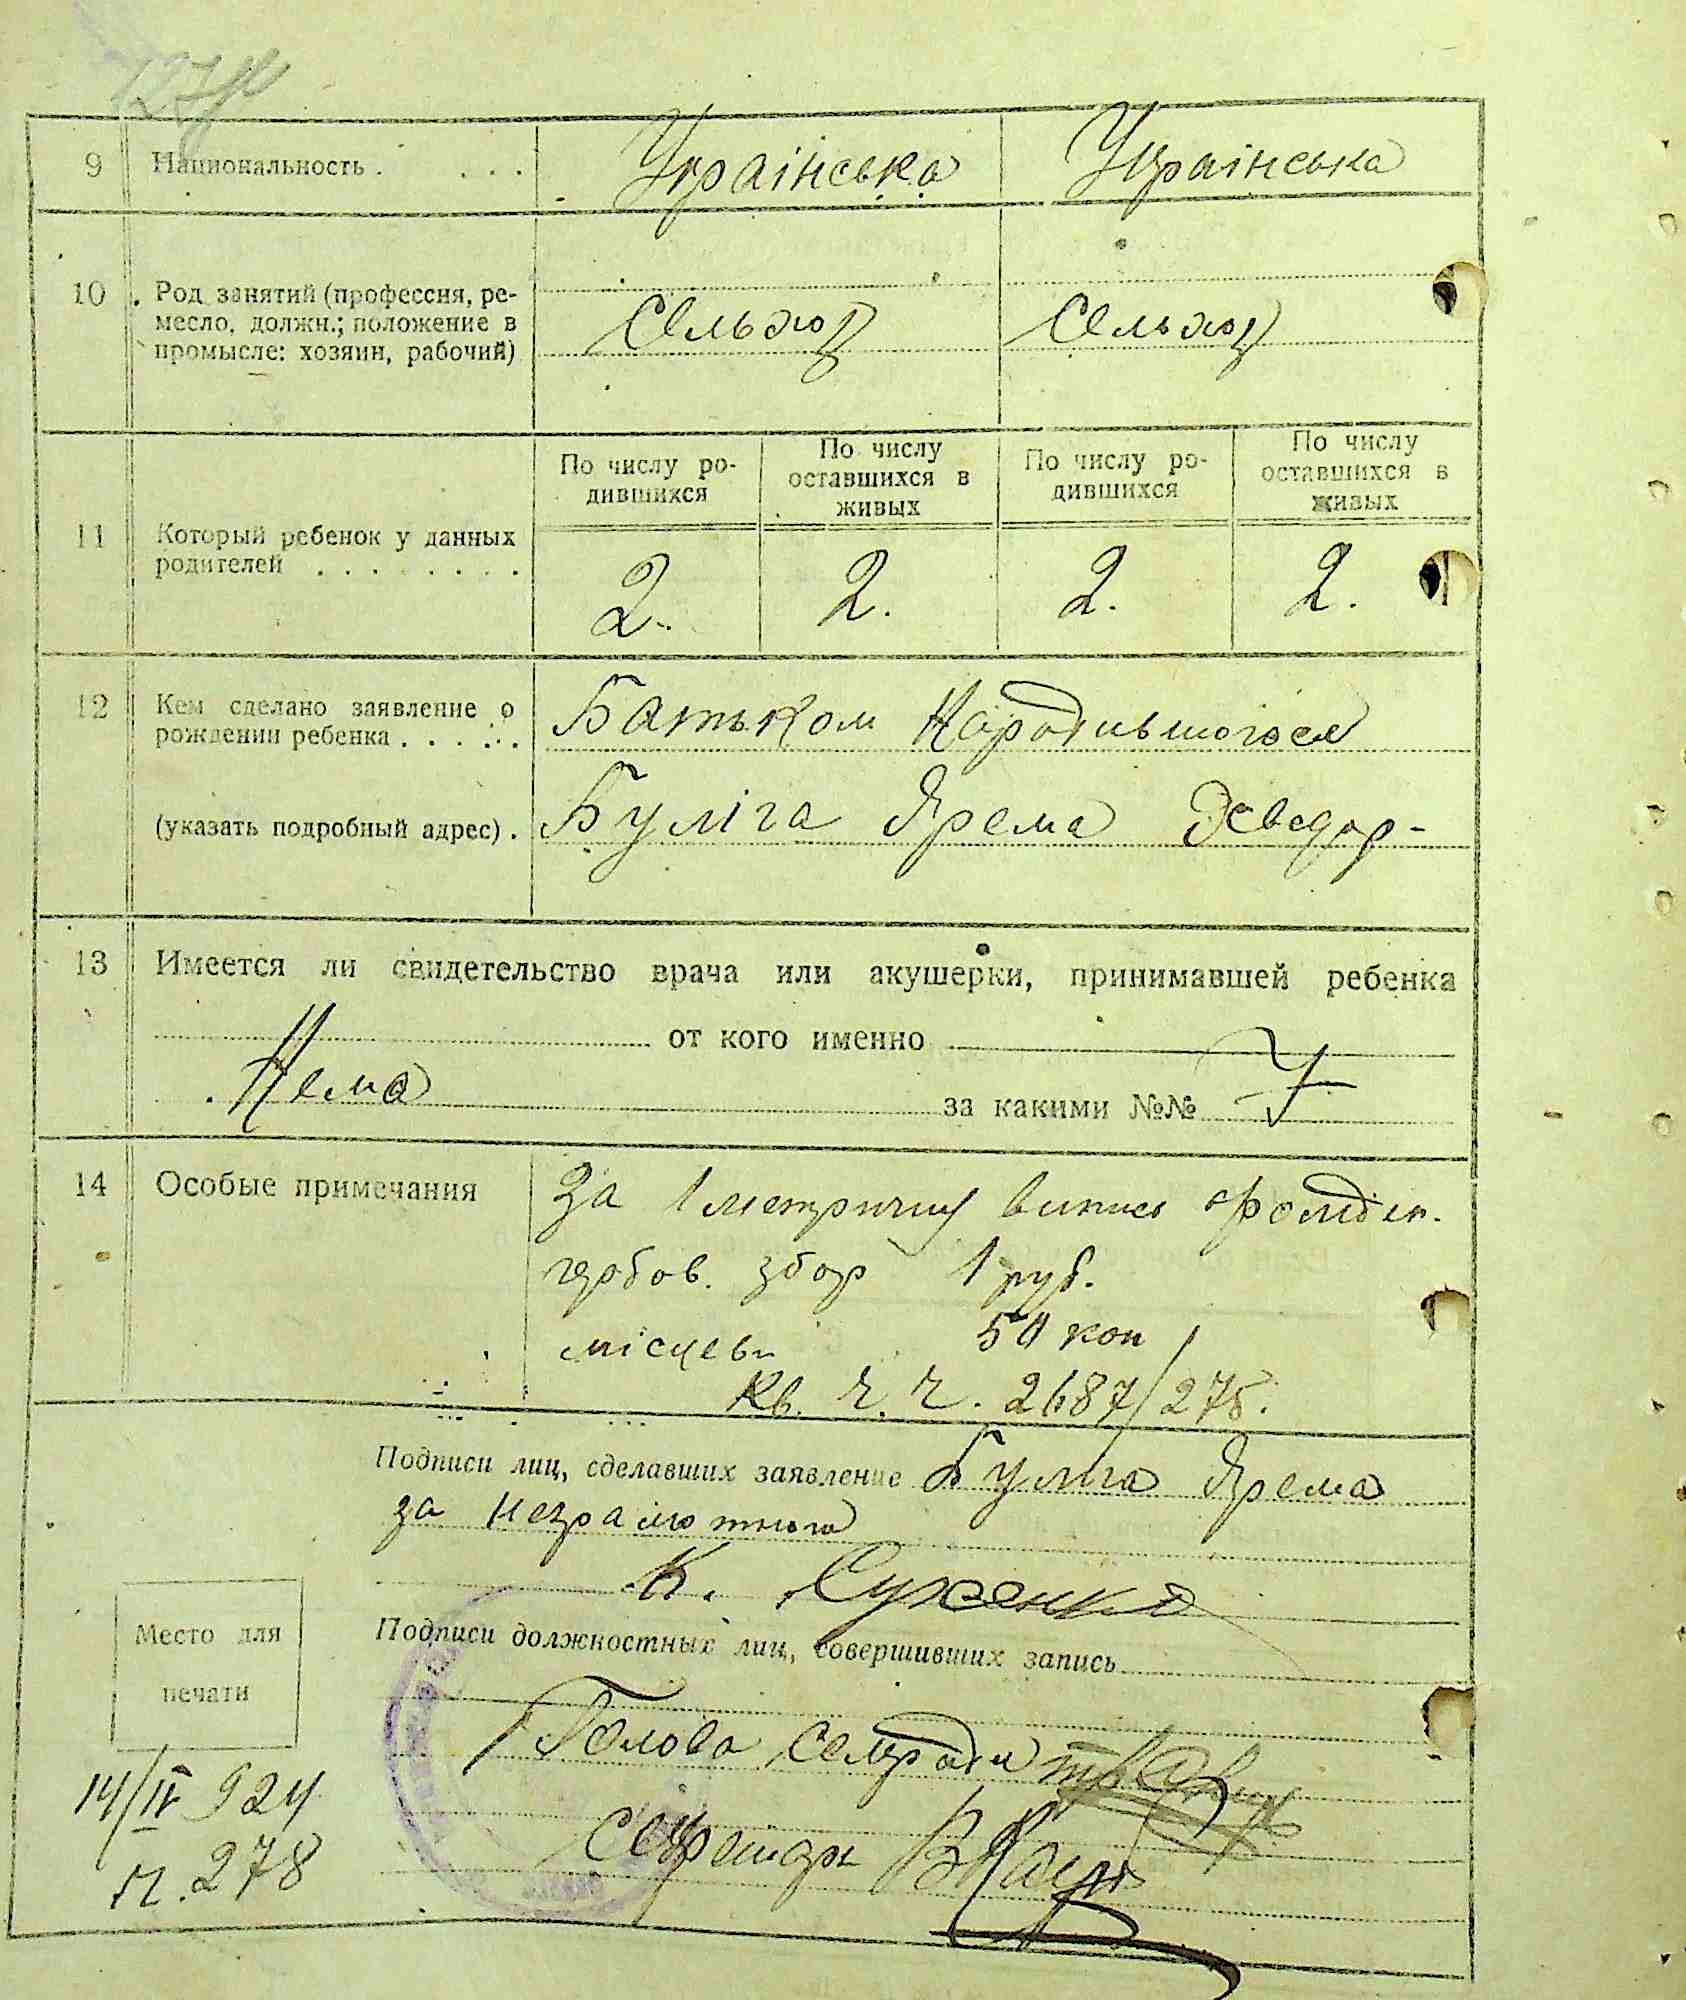 9 Национальность . . . . Українська Українська
10 Род занятий (профессия, ре-
месло, должн.; положение в
промысле: хозяин, рабочий)
Сельхоз Сельхоз
11 Который ребенок у данных
родителей . . . . . . . .
По числу ро-
дившихся
По числу
оставшихся в
живых
По числу ро-
дившихся
По числу
оставшихся в
живых
2. 2. 2. 2.
12 Кем сделано заявление о
рождении ребенка . . . . .
Батьком Народившогося
(указать подробный адрес) . Буліга Ярема
13 Имеется ли свидетельство врача или акушерки, принимавшей ребенка
от кого именно
Нема за какими №№
14 Особые примечания
За 1 метричну випись
гербов. збор 1 руб.
місцев. 50 коп
Кв. ч. ч. 2687/278.
Подписи лиц, сделавших заявление Буліга Ярема
за неграмотного
К. Сухенко
Подписи должностных лиц, совершивших запись
Место для
печати
Голова сельради
секретарь
14/IV 924
п. 278